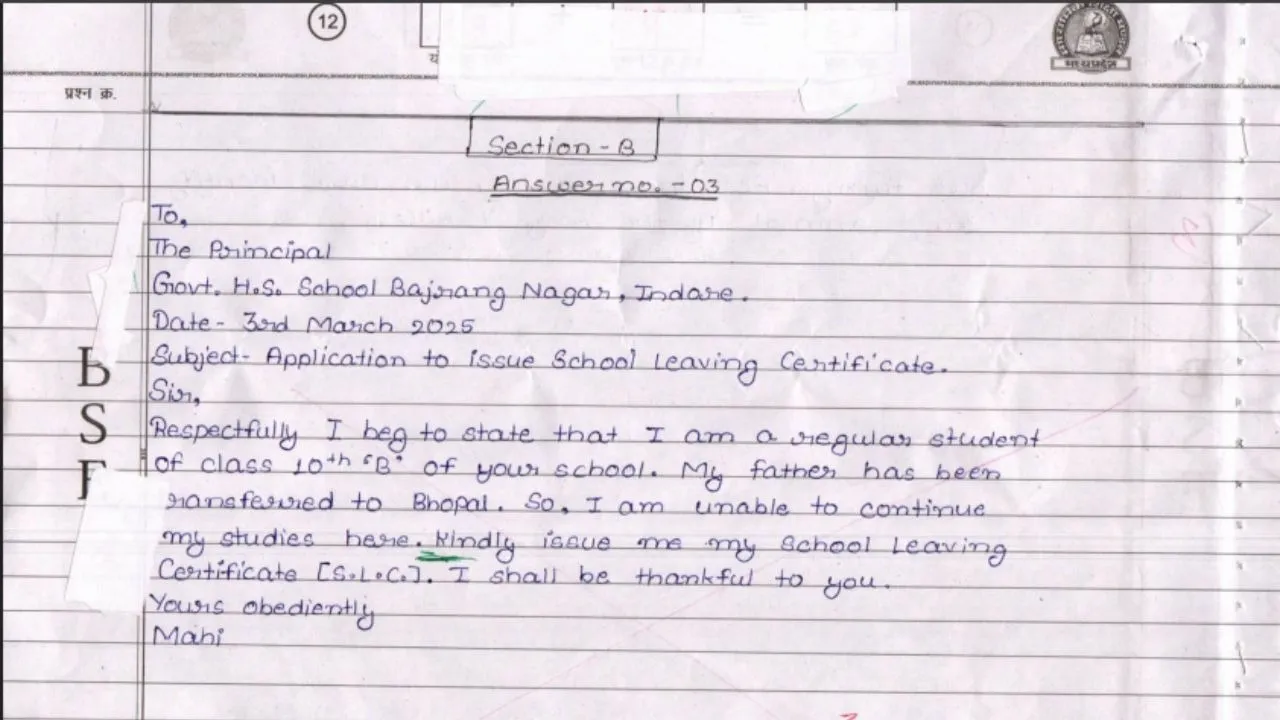 12
प्रश्न क्र.
मध्यप्रदेश
Section - B
Answer no. - 03
To,
The Principal
Govt. H.S. School Bajrang Nagar, Indore.
Date - 3rd March 2025
Subject - Application to issue School Leaving Certificate.
Sir,
Respectfully I beg to state that I am a regular student
of class 10th "B" of your school. My father has been
ransferred to Bhopal. So, I am unable to continue
my studies here. Kindly issue me my School Leaving
Certificate [S.L.C.]. I shall be thankful to you.
Yours obediently
Mahi
B
S